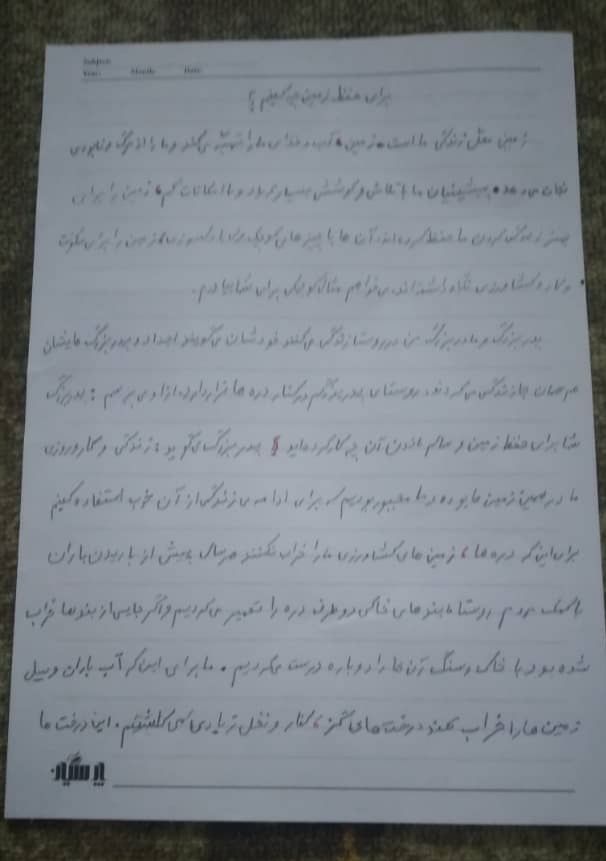 Subject:
Year: Month: Date:
برای حفظ زمین چه کنیم؟
زمین محل زندگی ما است. زمین، آب و غذای ما را تهیه می‌کند و ما را از مرگ و نابودی
نجات می‌دهد. پیشینیان ما با تلاش و کوشش بسیار زیاد و با امکانات کم، زمین را برای
بهتر زندگی کردن ما حفظ کرده‌اند. آن ها با چیزهای کوچک برای ما دلسوزی زمین را برای سکونت
و کار و کشاورزی نگاه داشته‌اند. می‌خواهم مثال کوچکی برای شما بیاورم.
پدربزرگ و مادربزرگ من در روستا زندگی می‌کنند خودشان می‌گویند اجداد و پدربزرگ هایشان
هم همان جا زندگی می‌کردند. روستای پدربزرگم در کنار دره ها قرار دارد. از او می پرسم: پدربزرگ
شما برای حفظ زمین و سالم ماندن آن چه کار کرده‌اید؟ پدر بزرگ می‌گوید: زندگی و کار و روزی
ما در همین زمین ها بوده و ما مجبور بودیم که برای ادامه‌ی زندگی از آن خوب استفاده کنیم
برای این که دره ها، زمین های کشاورزی ما را خراب نکنند هر سال پیش از باریدن باران
با کمک مردم روستا، بندهای خاکی دو طرف دره را تعمیر می‌کردیم و اگر جایی از بندها خراب
شده بود با خاک و سنگ آن ها را دوباره درست می‌کردیم. ما برای این که آب باران و سیل
زمین ها را خراب نکند درخت های گز، کنار و نخل زیادی می کاشتیم. این درخت ها
پارسیان